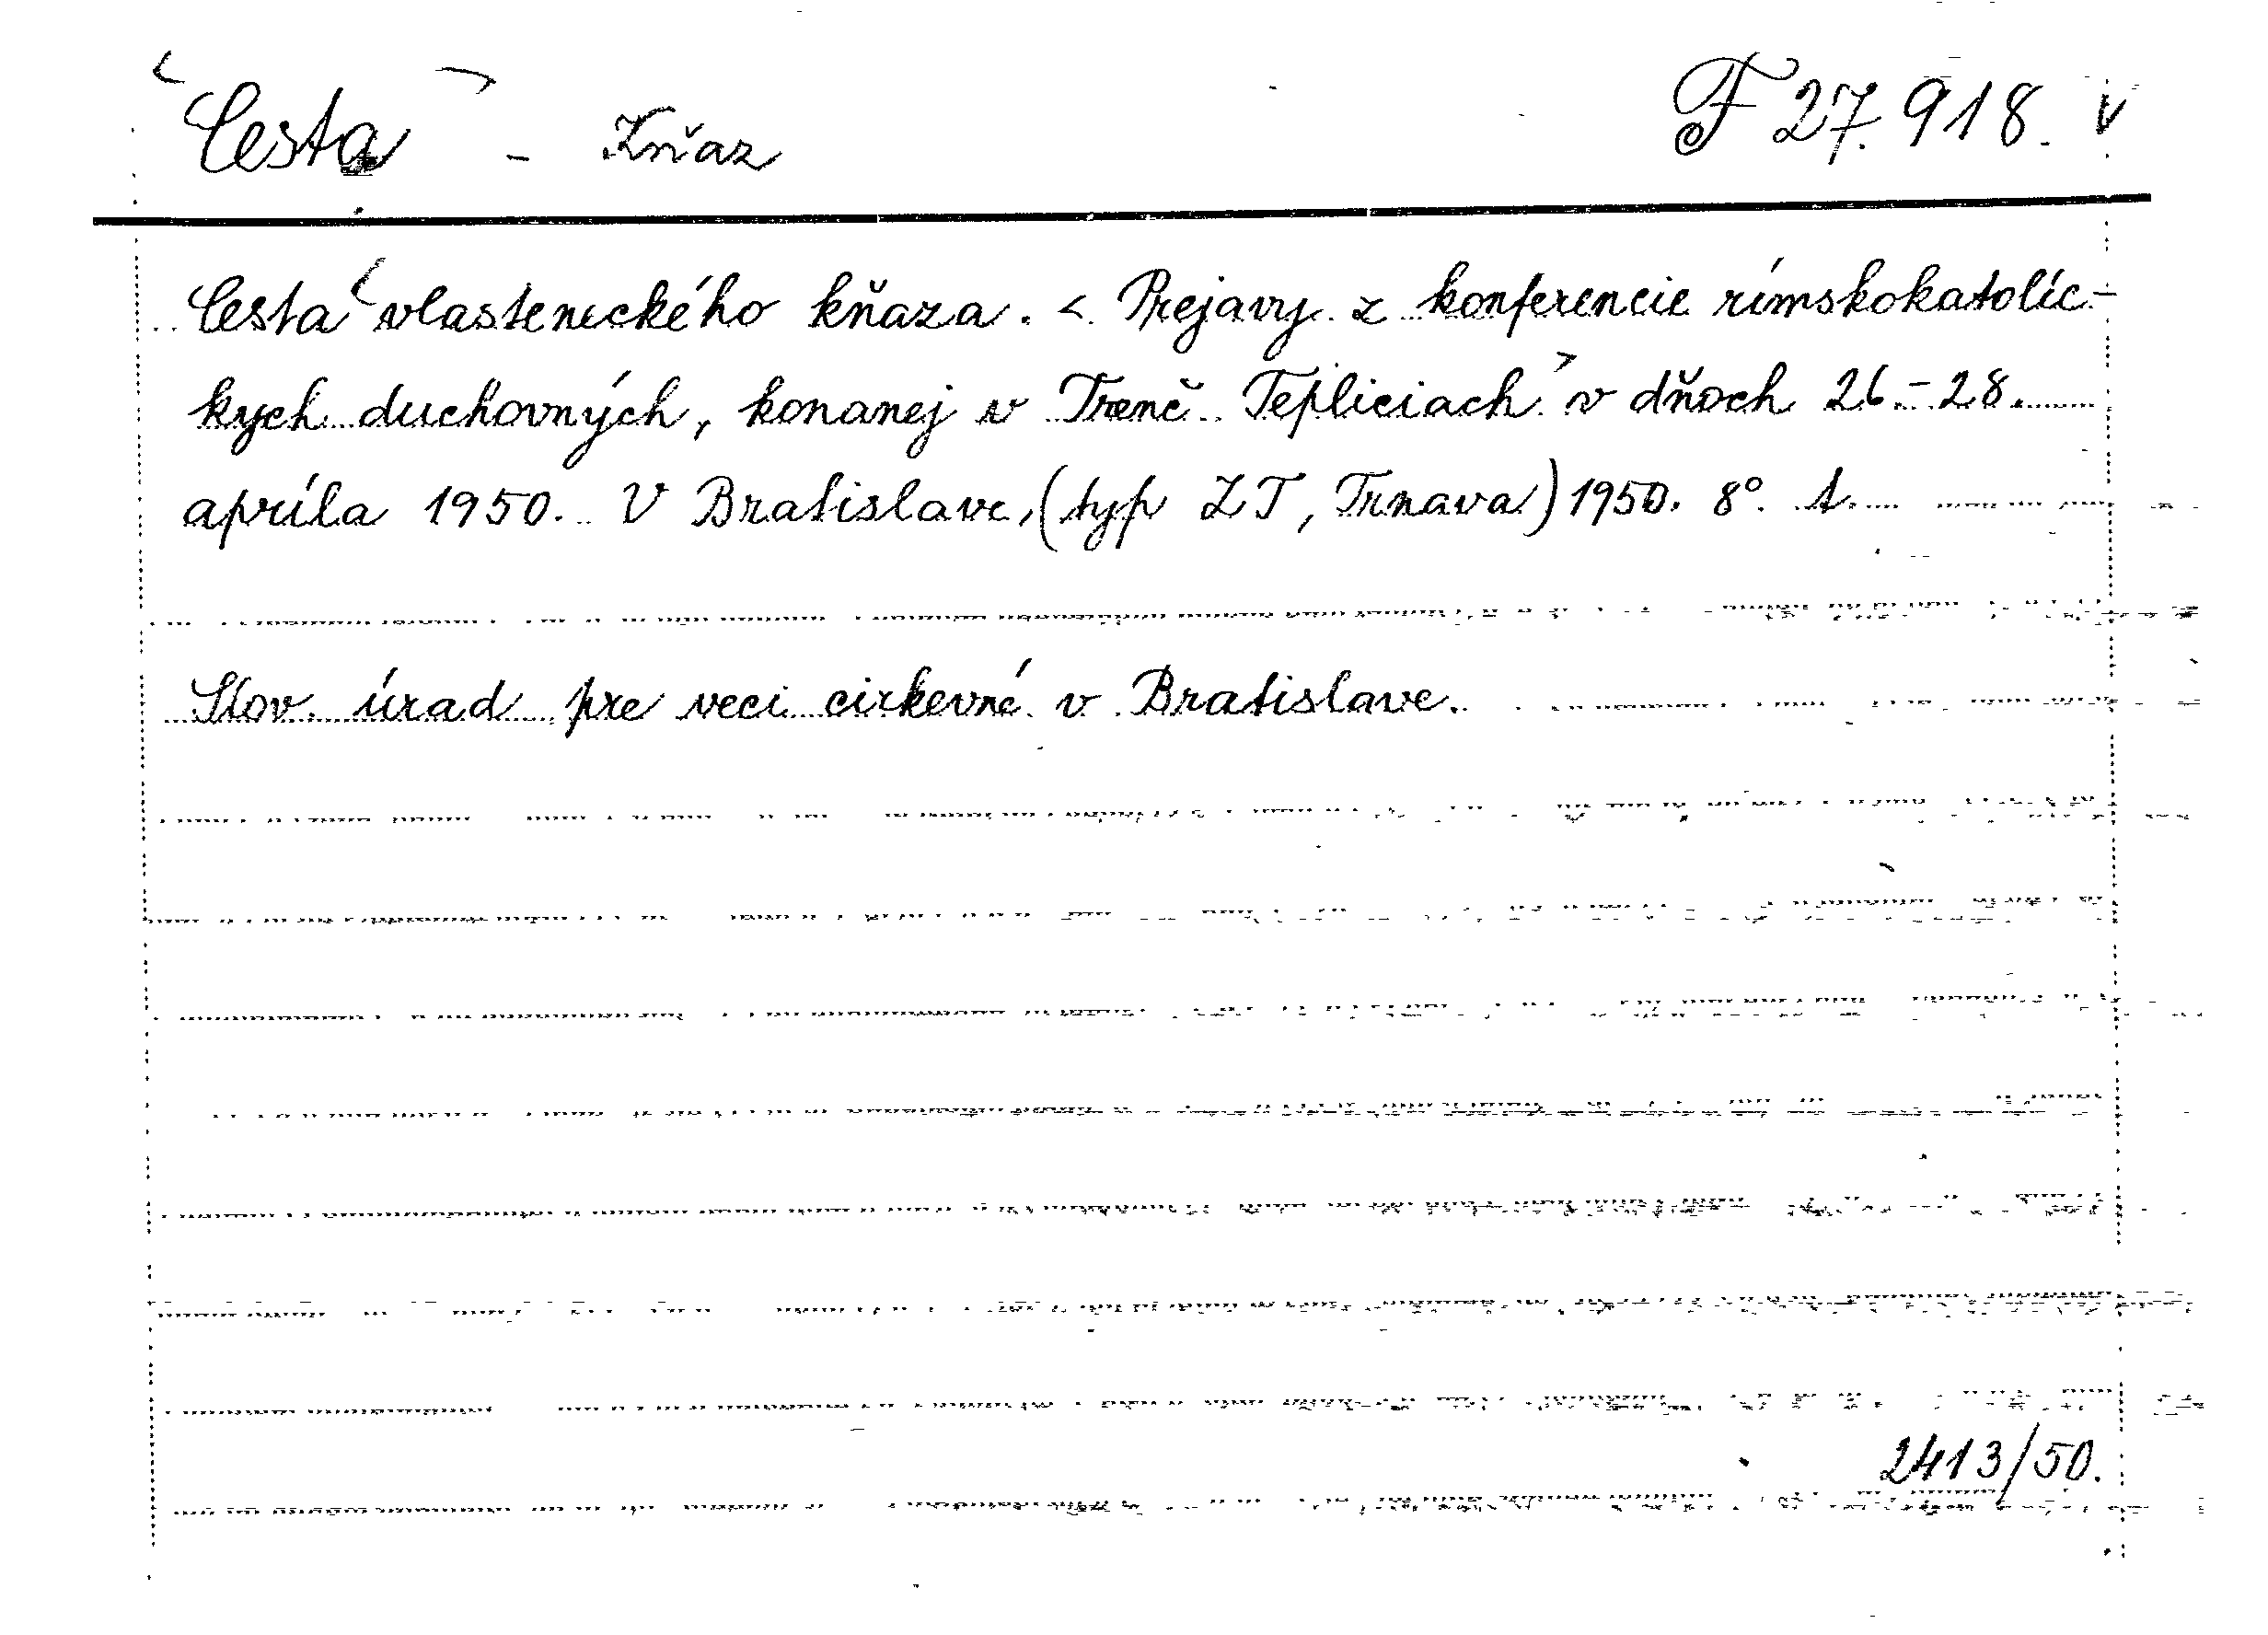 <Cesta> - Kňaz F 27.918. v
Cesta <vlasteneckého kňaza. <Prejavy z konferencie rímskokatolíc-
kych duchovných, konanej v Trenč. Tepliciach> v dňoch 26.-28.
apríla 1950. V Bratislave, (typ ZT, Trnava) 1950. 8°. t.
Slov. úrad pre veci cirkevné v Bratislave.
2413/50.